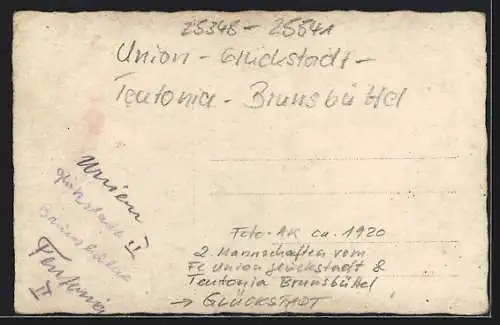 25348 - 25541
Union - Glückstadt -
Teutonia - Brunsbüttel
Union
Glückstadt II
Brunsbüttel
Teutonia
II
Foto-AK ca. 1920
2. Mannschaften vom
FC Union Glückstadt &
Teutonia Brunsbüttel
→ GLÜCKSTADT